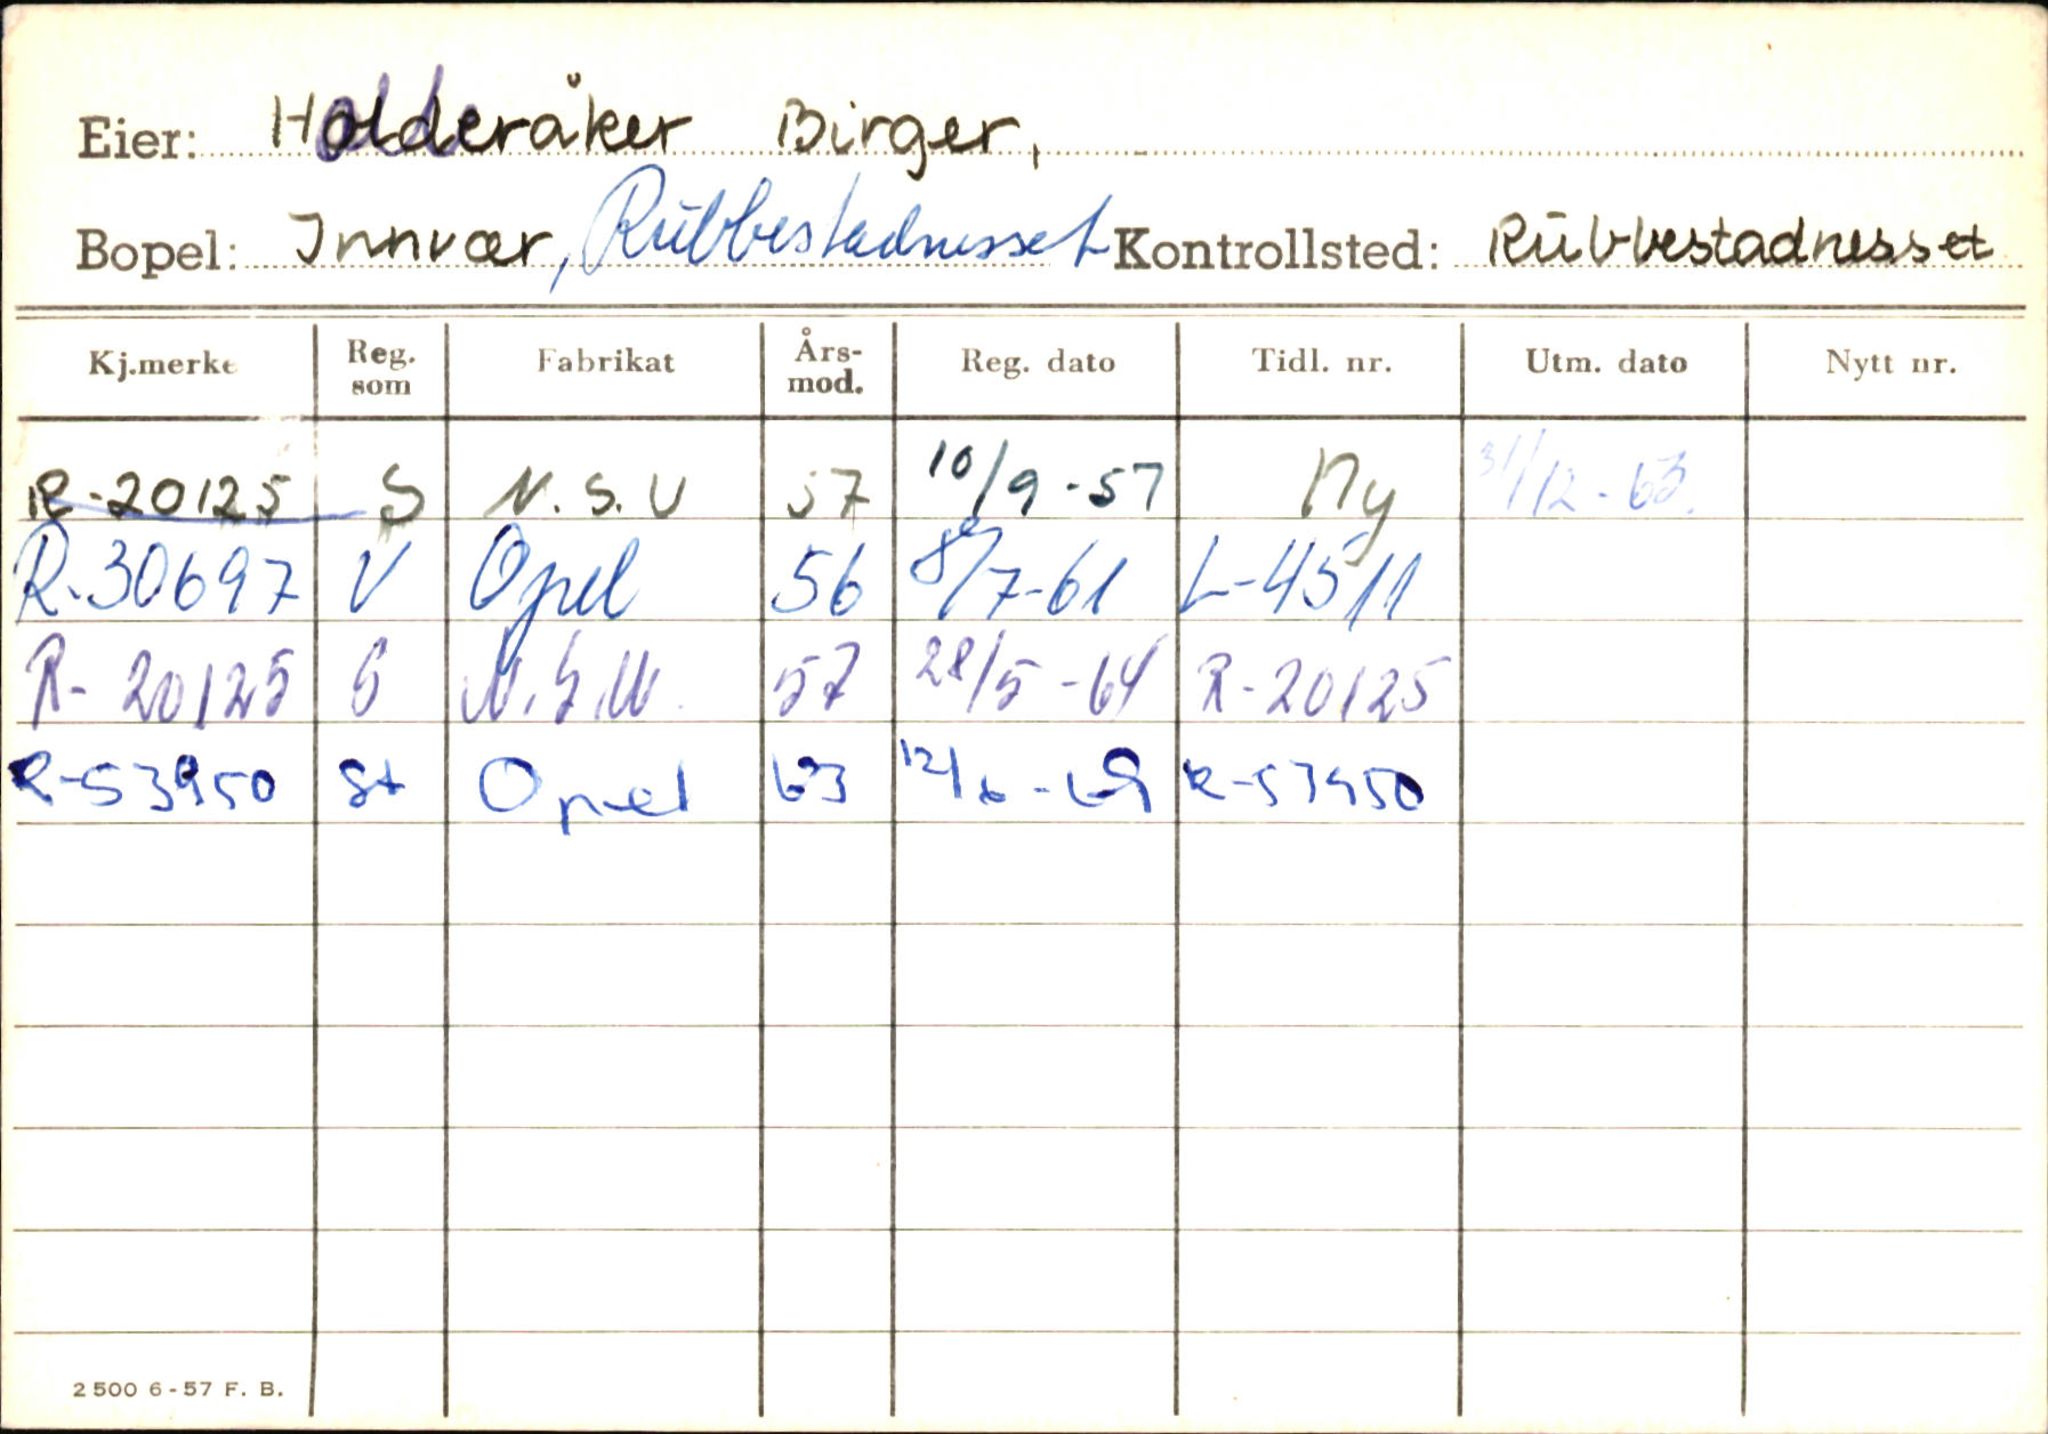 Eier: Holderåker Birger,
Bopel: Innvær, Rubbestadnesset Kontrollsted: Rubbestadnesset
Kj.merke Reg. som Fabrikat Års-mod. Reg. dato Tidl. nr. Utm. dato Nytt nr.
R-20125 S N.S.U 57 10/9-57 Ny 31/12-63.
R-30697 V Opel 56 8/7-61 L-4511
R-20125 S N.S.U. 57 28/5-64 R-20125
R-53950 St Opel 63 12/6-69 R-53950
2500 6-57 F. B.